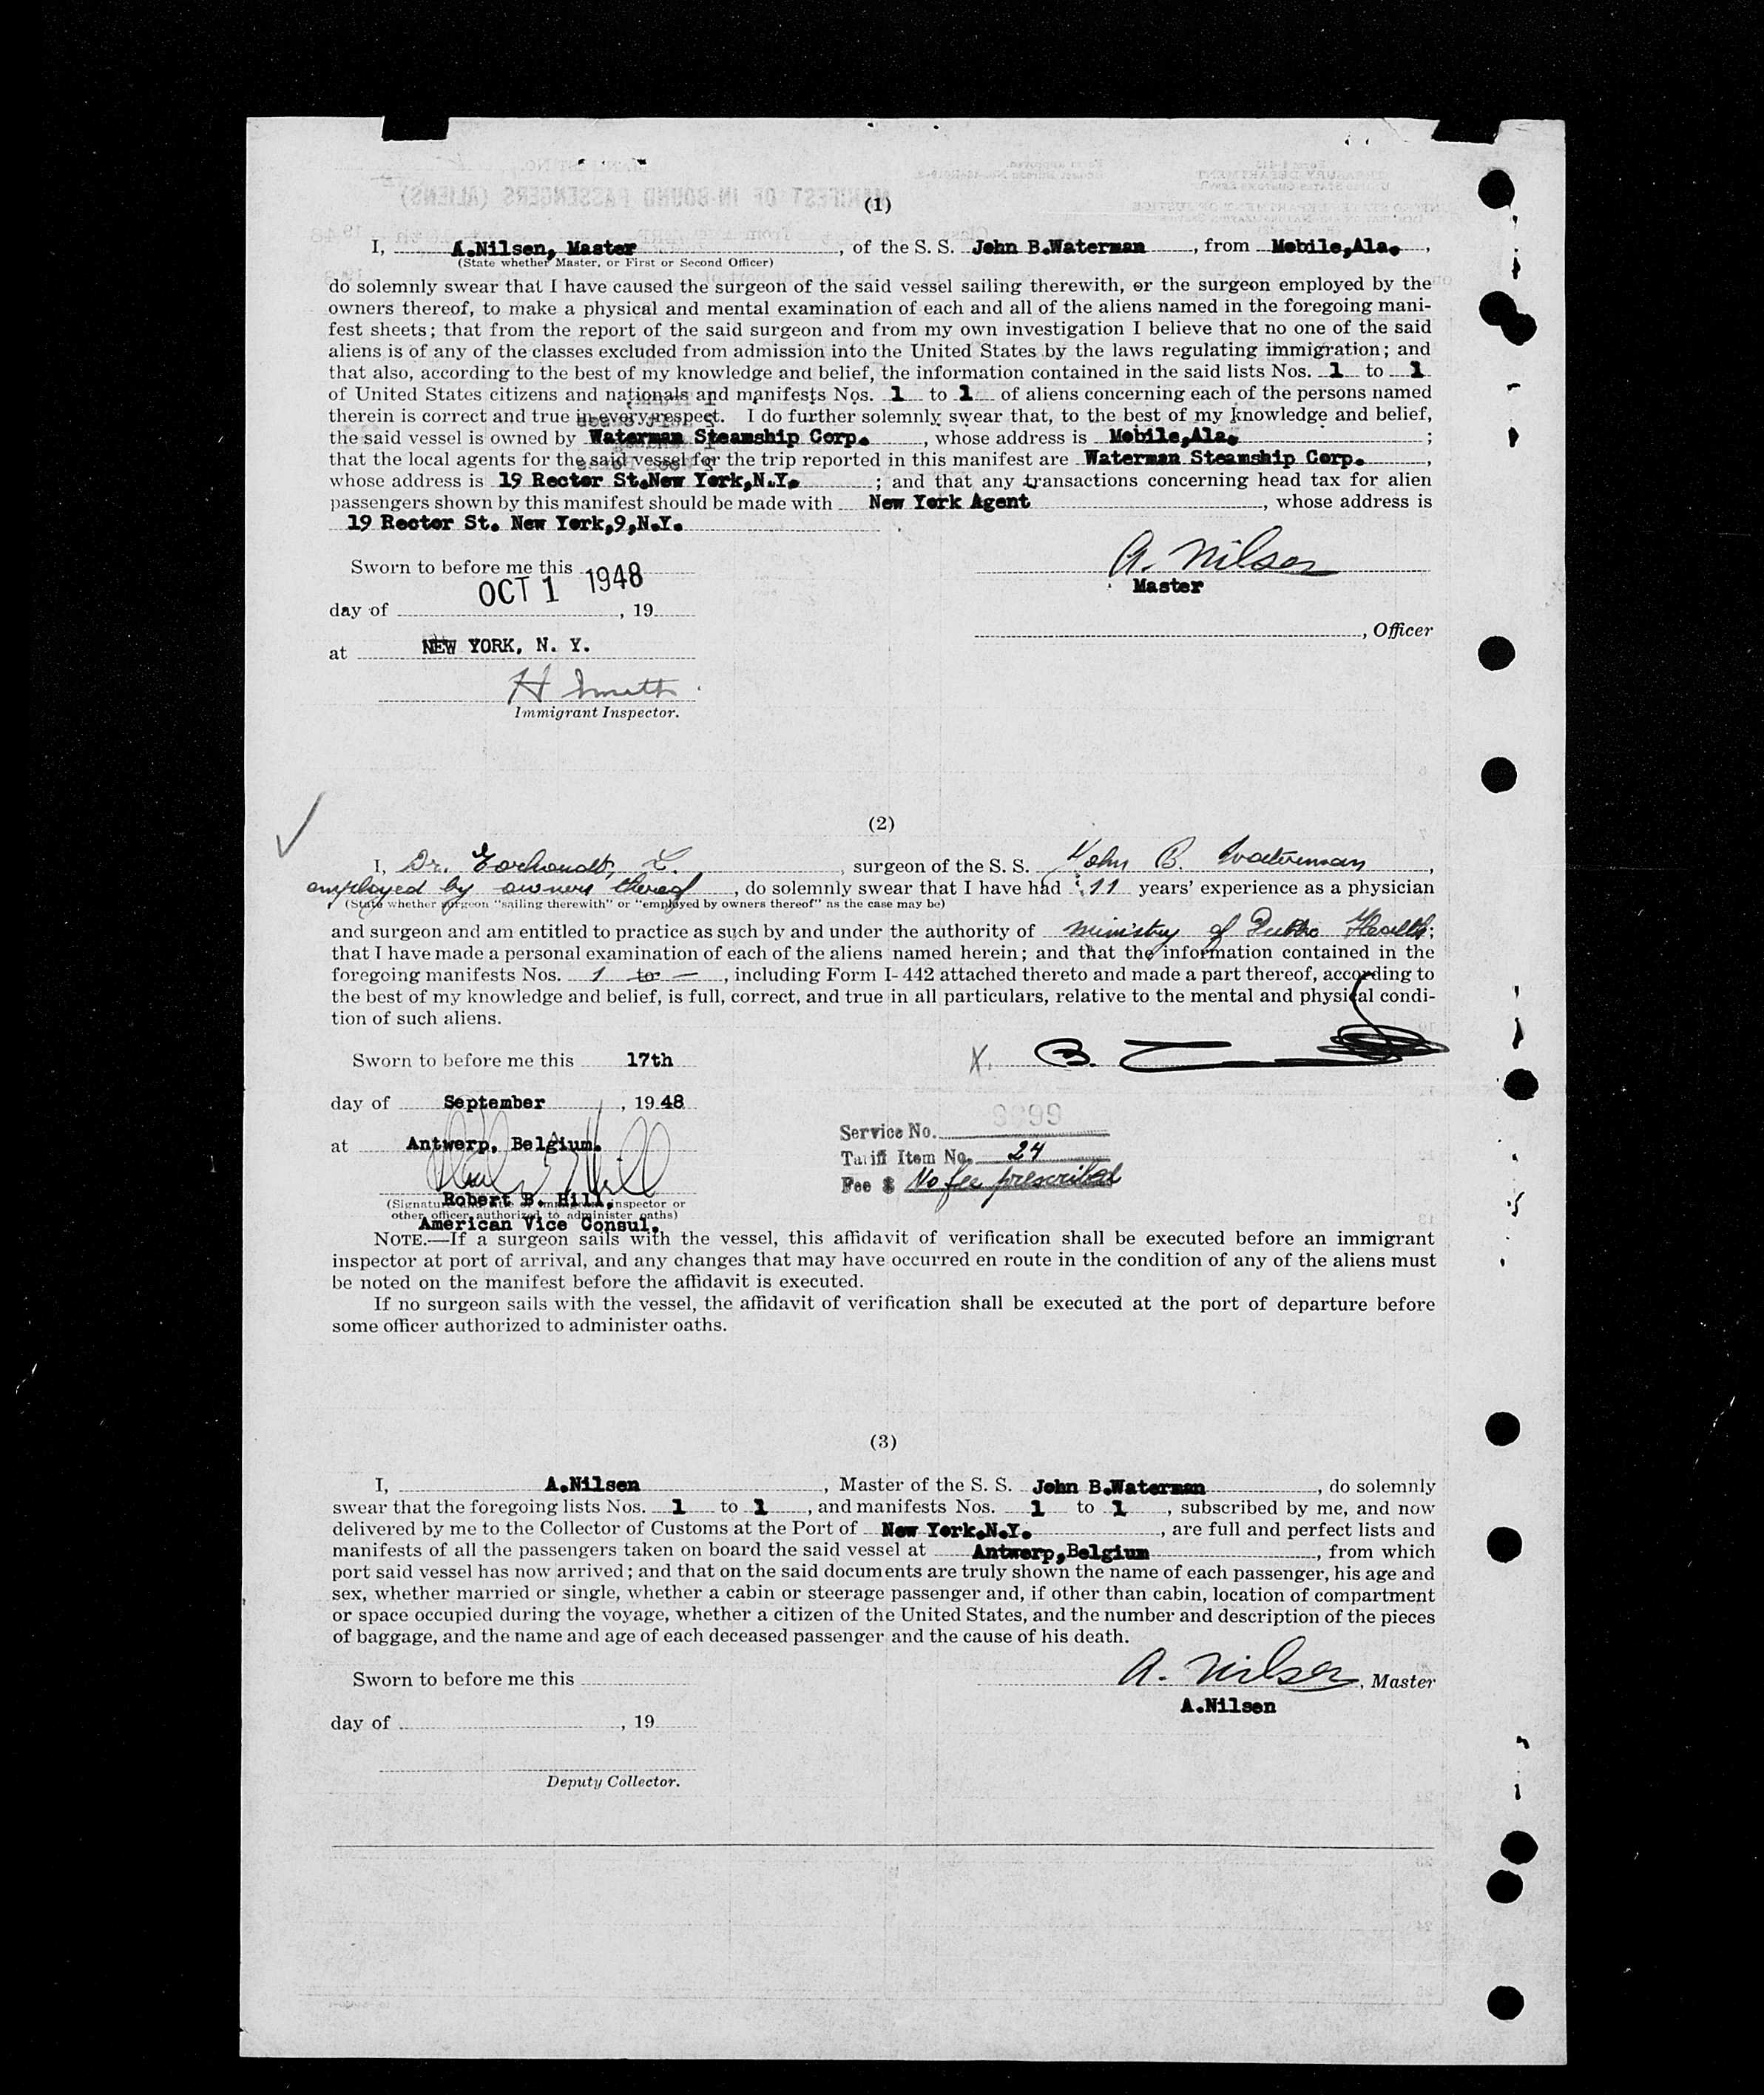 (1)
I, A.Nilsen, Master, of the S. S. John B.Waterman, from Mobile,Ala.,
(State whether Master, or First or Second Officer)
do solemnly swear that I have caused the surgeon of the said vessel sailing therewith, or the surgeon employed by the
owners thereof, to make a physical and mental examination of each and all of the aliens named in the foregoing mani-
fest sheets; that from the report of the said surgeon and from my own investigation I believe that no one of the said
aliens is of any of the classes excluded from admission into the United States by the laws regulating immigration; and
that also, according to the best of my knowledge and belief, the information contained in the said lists Nos. 1 to 1
of United States citizens and nationals and manifests Nos. 1 to 1 of aliens concerning each of the persons named
therein is correct and true in every respect. I do further solemnly swear that, to the best of my knowledge and belief,
the said vessel is owned by Waterman Steamship Corp., whose address is Mobile,Ala.;
that the local agents for the said vessel for the trip reported in this manifest are Waterman Steamship Corp.,
whose address is 19 Rector St.New York,N.Y.; and that any transactions concerning head tax for alien
passengers shown by this manifest should be made with New York Agent, whose address is
19 Rector St. New York,9,N.Y.
Sworn to before me this
A. Nilsen
OCT 1 1948
Master
day of , 19
, Officer
at NEW YORK, N. Y.
H Smith
Immigrant Inspector.
(2)
I, Dr. L., surgeon of the S. S. John B. Waterman,
employed by owners thereof, do solemnly swear that I have had 11 years' experience as a physician
(State whether surgeon "sailing therewith" or "employed by owners thereof" as the case may be)
and surgeon and am entitled to practice as such by and under the authority of ministry of Public Health;
that I have made a personal examination of each of the aliens named herein; and that the information contained in the
foregoing manifests Nos. 1 to —, including Form I-442 attached thereto and made a part thereof, according to
the best of my knowledge and belief, is full, correct, and true in all particulars, relative to the mental and physical condi-
tion of such aliens.
Sworn to before me this 17th
X. B.
day of September, 1948
Service No. 9399
at Antwerp, Belgium.
Tariff Item No. 24
Fee $ No fee prescribed
Robert B. Hill,
(Signature and title of immigrant inspector or
other officer authorized to administer oaths)
American Vice Consul.
NOTE.—If a surgeon sails with the vessel, this affidavit of verification shall be executed before an immigrant
inspector at port of arrival, and any changes that may have occurred en route in the condition of any of the aliens must
be noted on the manifest before the affidavit is executed.
If no surgeon sails with the vessel, the affidavit of verification shall be executed at the port of departure before
some officer authorized to administer oaths.
(3)
I, A.Nilsen, Master of the S. S. John B.Waterman, do solemnly
swear that the foregoing lists Nos. 1 to 1, and manifests Nos. 1 to 1, subscribed by me, and now
delivered by me to the Collector of Customs at the Port of New York.N.Y., are full and perfect lists and
manifests of all the passengers taken on board the said vessel at Antwerp,Belgium, from which
port said vessel has now arrived; and that on the said documents are truly shown the name of each passenger, his age and
sex, whether married or single, whether a cabin or steerage passenger and, if other than cabin, location of compartment
or space occupied during the voyage, whether a citizen of the United States, and the number and description of the pieces
of baggage, and the name and age of each deceased passenger and the cause of his death.
Sworn to before me this
A. Nilsen, Master
A.Nilsen
day of , 19
Deputy Collector.